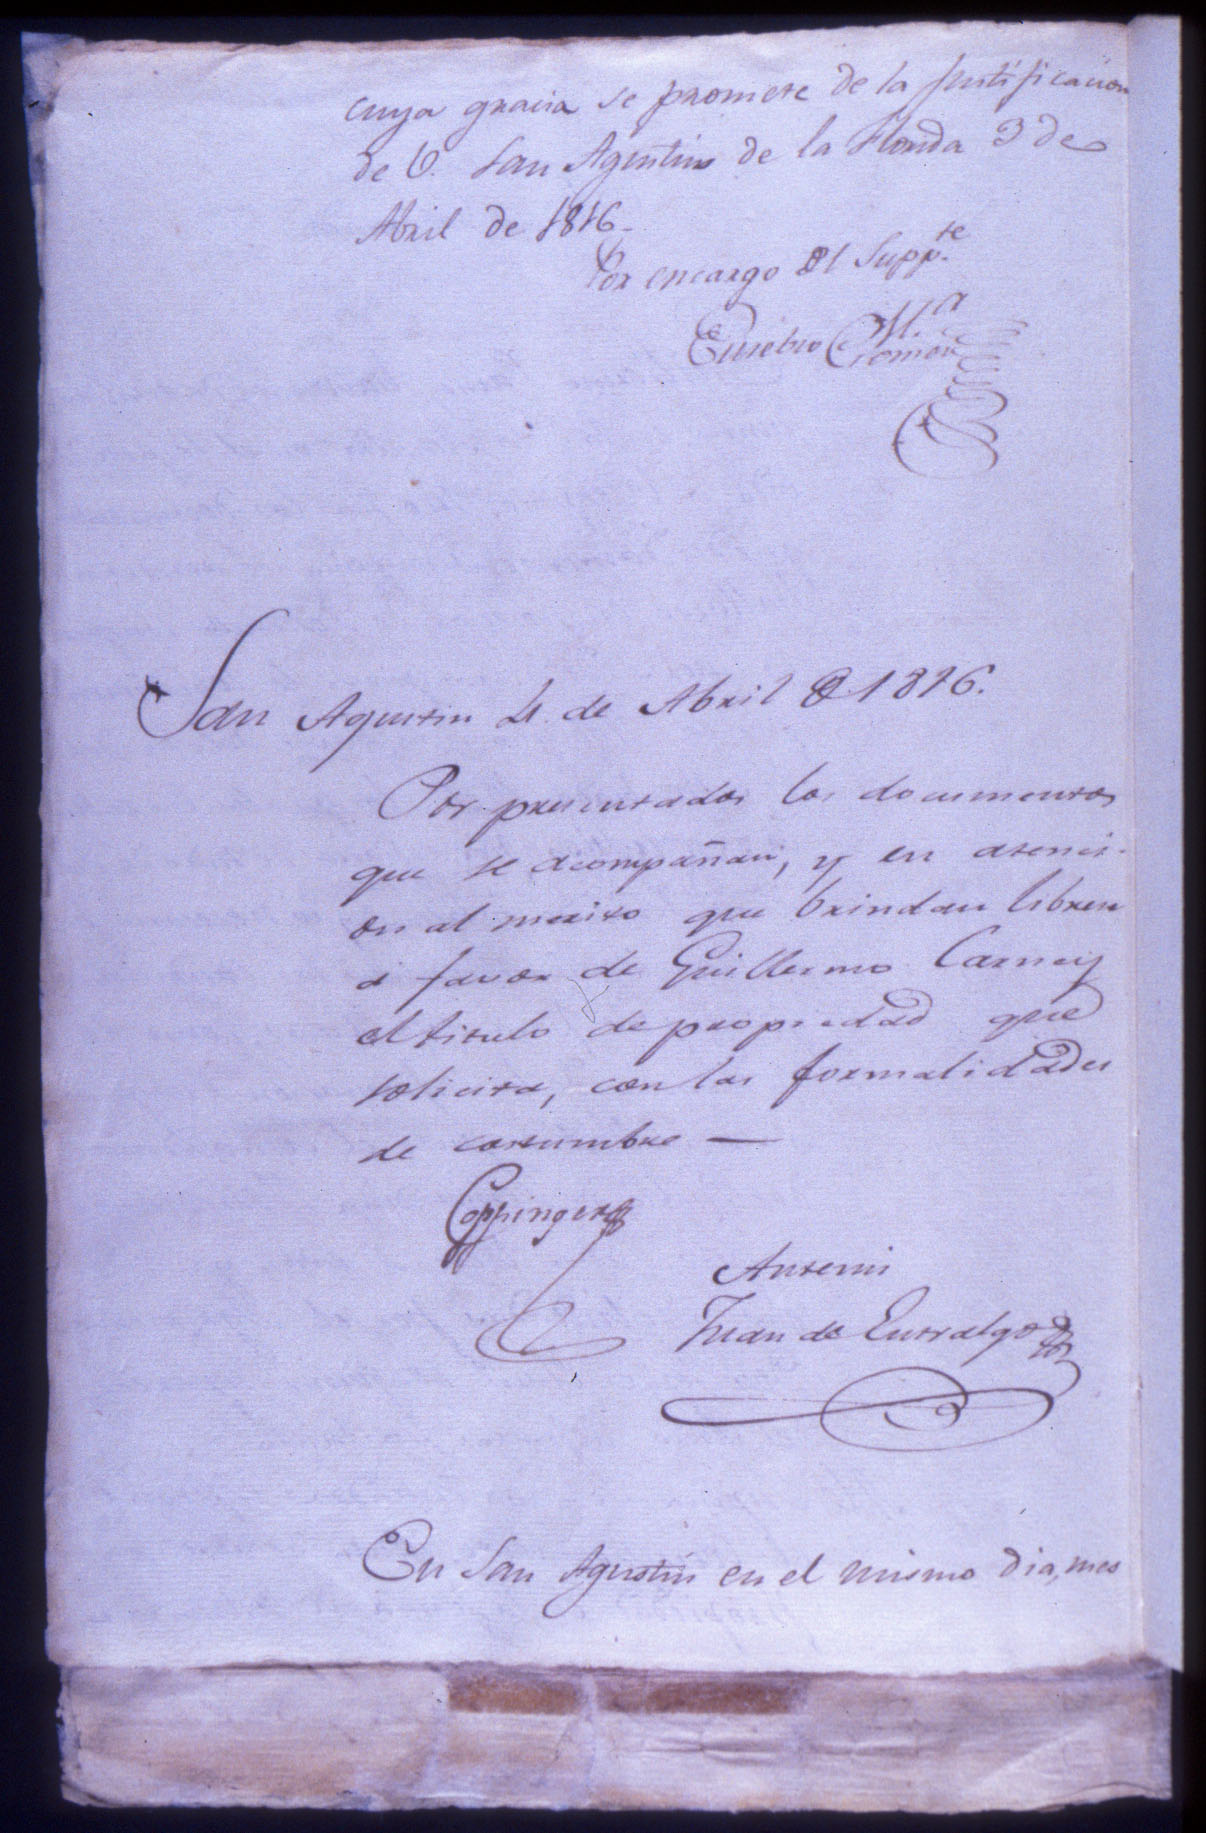 cuya gracia se promete de la justificacion
de V. San Agustin de la Florida 3 de
Abril de 1816-
Por encargo del Supp.te
Eusebio M.a
Gomez
San Agustin 4 de Abril de 1816.
Por presentados los documentos
que se acompañan, y en atenci-
on al merito que brindan librese
a favor de Guillermo Carney
el titulo de propiedad que
solicita, con las formalidades
de costumbre —
Coppinger
Antemi
Juan de Entralgo
En San Agustin en el mismo dia, mes